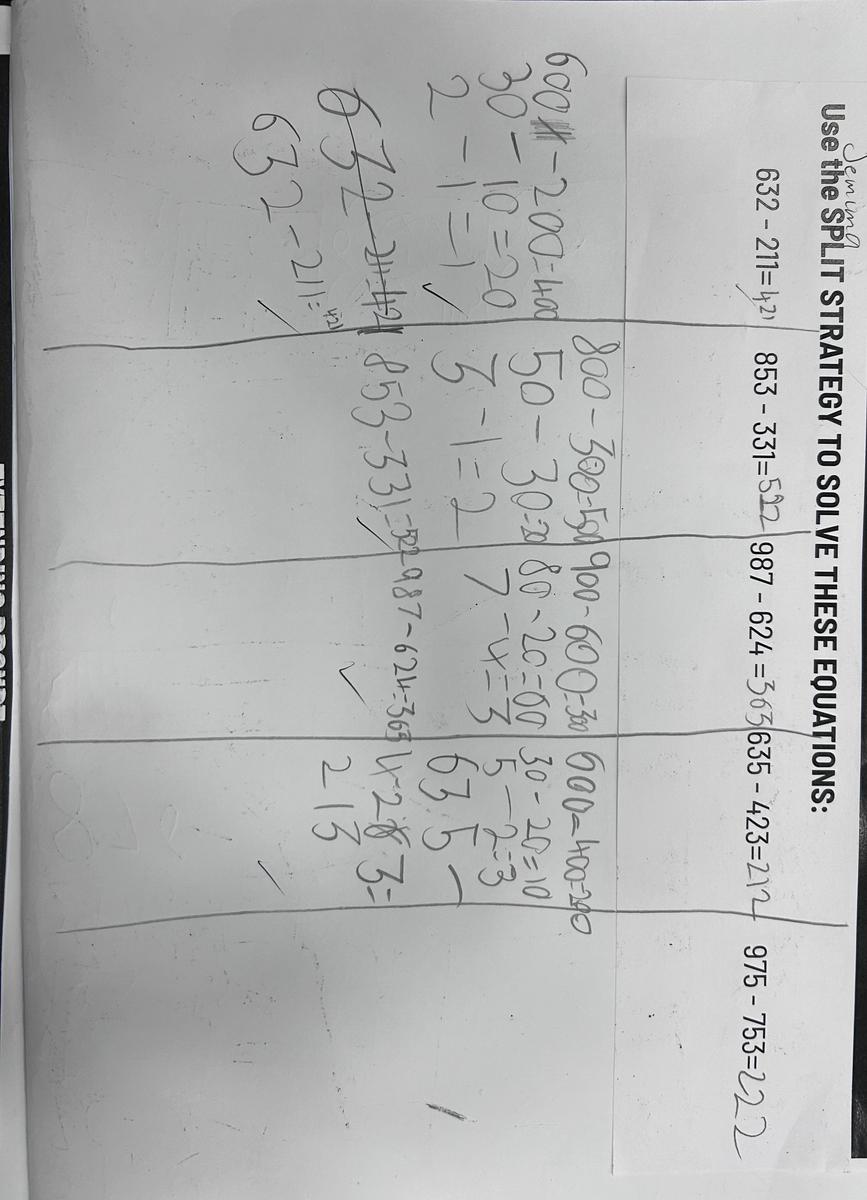 Jemima
Use the SPLIT STRATEGY TO SOLVE THESE EQUATIONS:
632 - 211=421 853 - 331=522 987 - 624=363 635 - 423=212 975 - 753=222
600 - 200=400
30 - 10=20
2 - 1=1
632 - 211=421
632 - 211=421
800 - 300=500
50 - 30=20
3 - 1=2
853-331=522
900-600=300
80-20=60
7-4=3
987-624=363
600-400=200
30-20=10
5-2=3
635-
423=
213